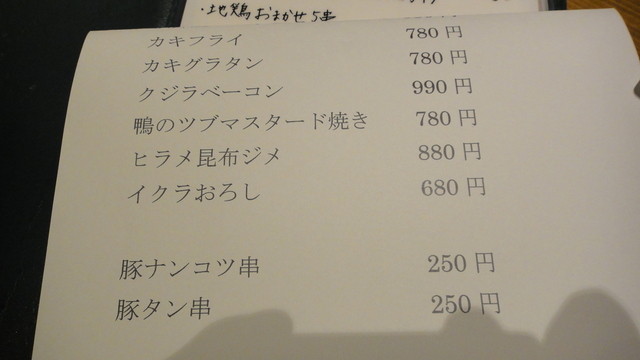 ・地鶏おまかせ5串
カキフライ 780 円
カキグラタン 780 円
クジラベーコン 990 円
鴨のツブマスタード焼き 780 円
ヒラメ昆布ジメ 880 円
イクラおろし 680 円
豚ナンコツ串 250 円
豚タン串 250 円